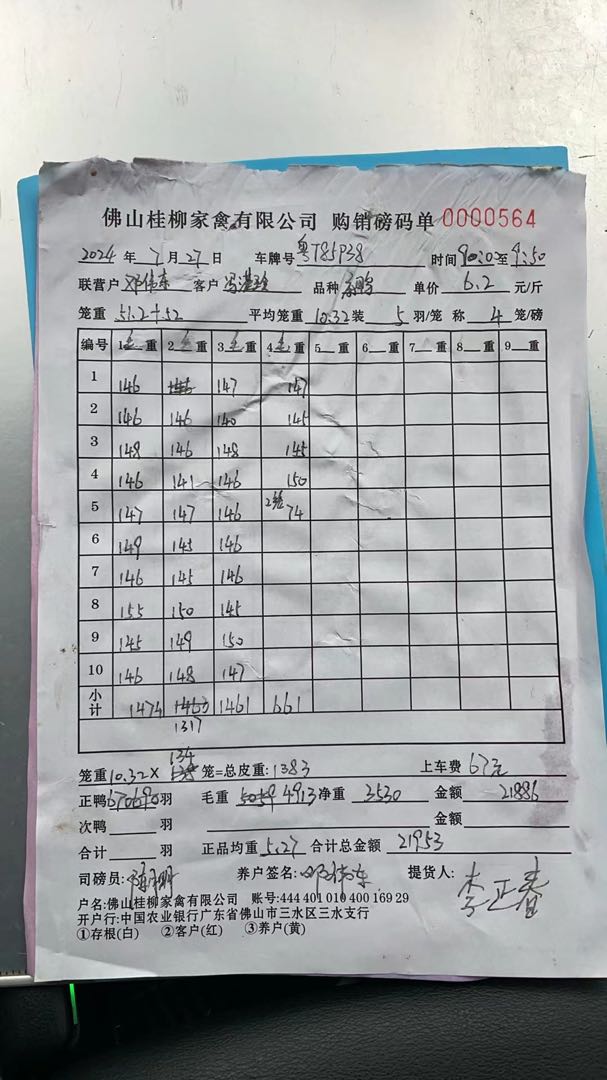 佛山桂柳家禽有限公司 购销磅码单 0000564
2024 年 7 月 27 日 车牌号 粤T85P38 时间 至 9:50
联营户 邓伟东 客户 品种 单价 6.2 元/斤
笼重 51.2+52 平均笼重 10.32 装 5 羽/笼 称 4 笼/磅
编号 1 毛 重 2 毛 重 3 毛 重 4 毛 重 5 重 6 重 7 重 8 重 9 重
1 146 146 147 147
2 146 146 140 145
3 148 146 148 145
4 146 141 146 150
5 147 147 146 2笼 74
6 149 145 146
7 146 145 146
8 155 150 145
9 145 149 150
10 146 148 147
小计 1474 1463 1461 661
1317
134
笼重 10.32 × 笼=总皮重: 1383 上车费 67元
正鸭 670 羽 毛重 5059 4913 净重 3530 金额 21886
次鸭 羽 金额
合计 羽 正品均重 5.27 合计总金额 21953
司磅员: 养户签名: 邓伟东 提货人: 李正春
户名:佛山桂柳家禽有限公司 账号:444 401 010 400 169 29
开户行:中国农业银行广东省佛山市三水区三水支行
①存根(白) ②客户(红) ③养户(黄)